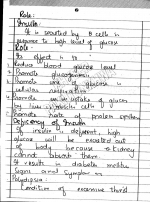 Role:
Insulin:
It is secreted by B cells in
response to high level of glucose
Role
Its object is to
Reduce blood glucose level
Promote glycogenesis
Promote use of glucose in
cellular respiration
Promote uptake of glucose
by liver muscle cells
Promote rate of protein synthesis
Deficiency of Insulin
If insulin is deficient, high
glucose will be excreted out
of body because kidney
cannot absorb them.
It results in diabetes mellitus
Signs and Symptoms
Polydipsia:
Condition of excessive thirst